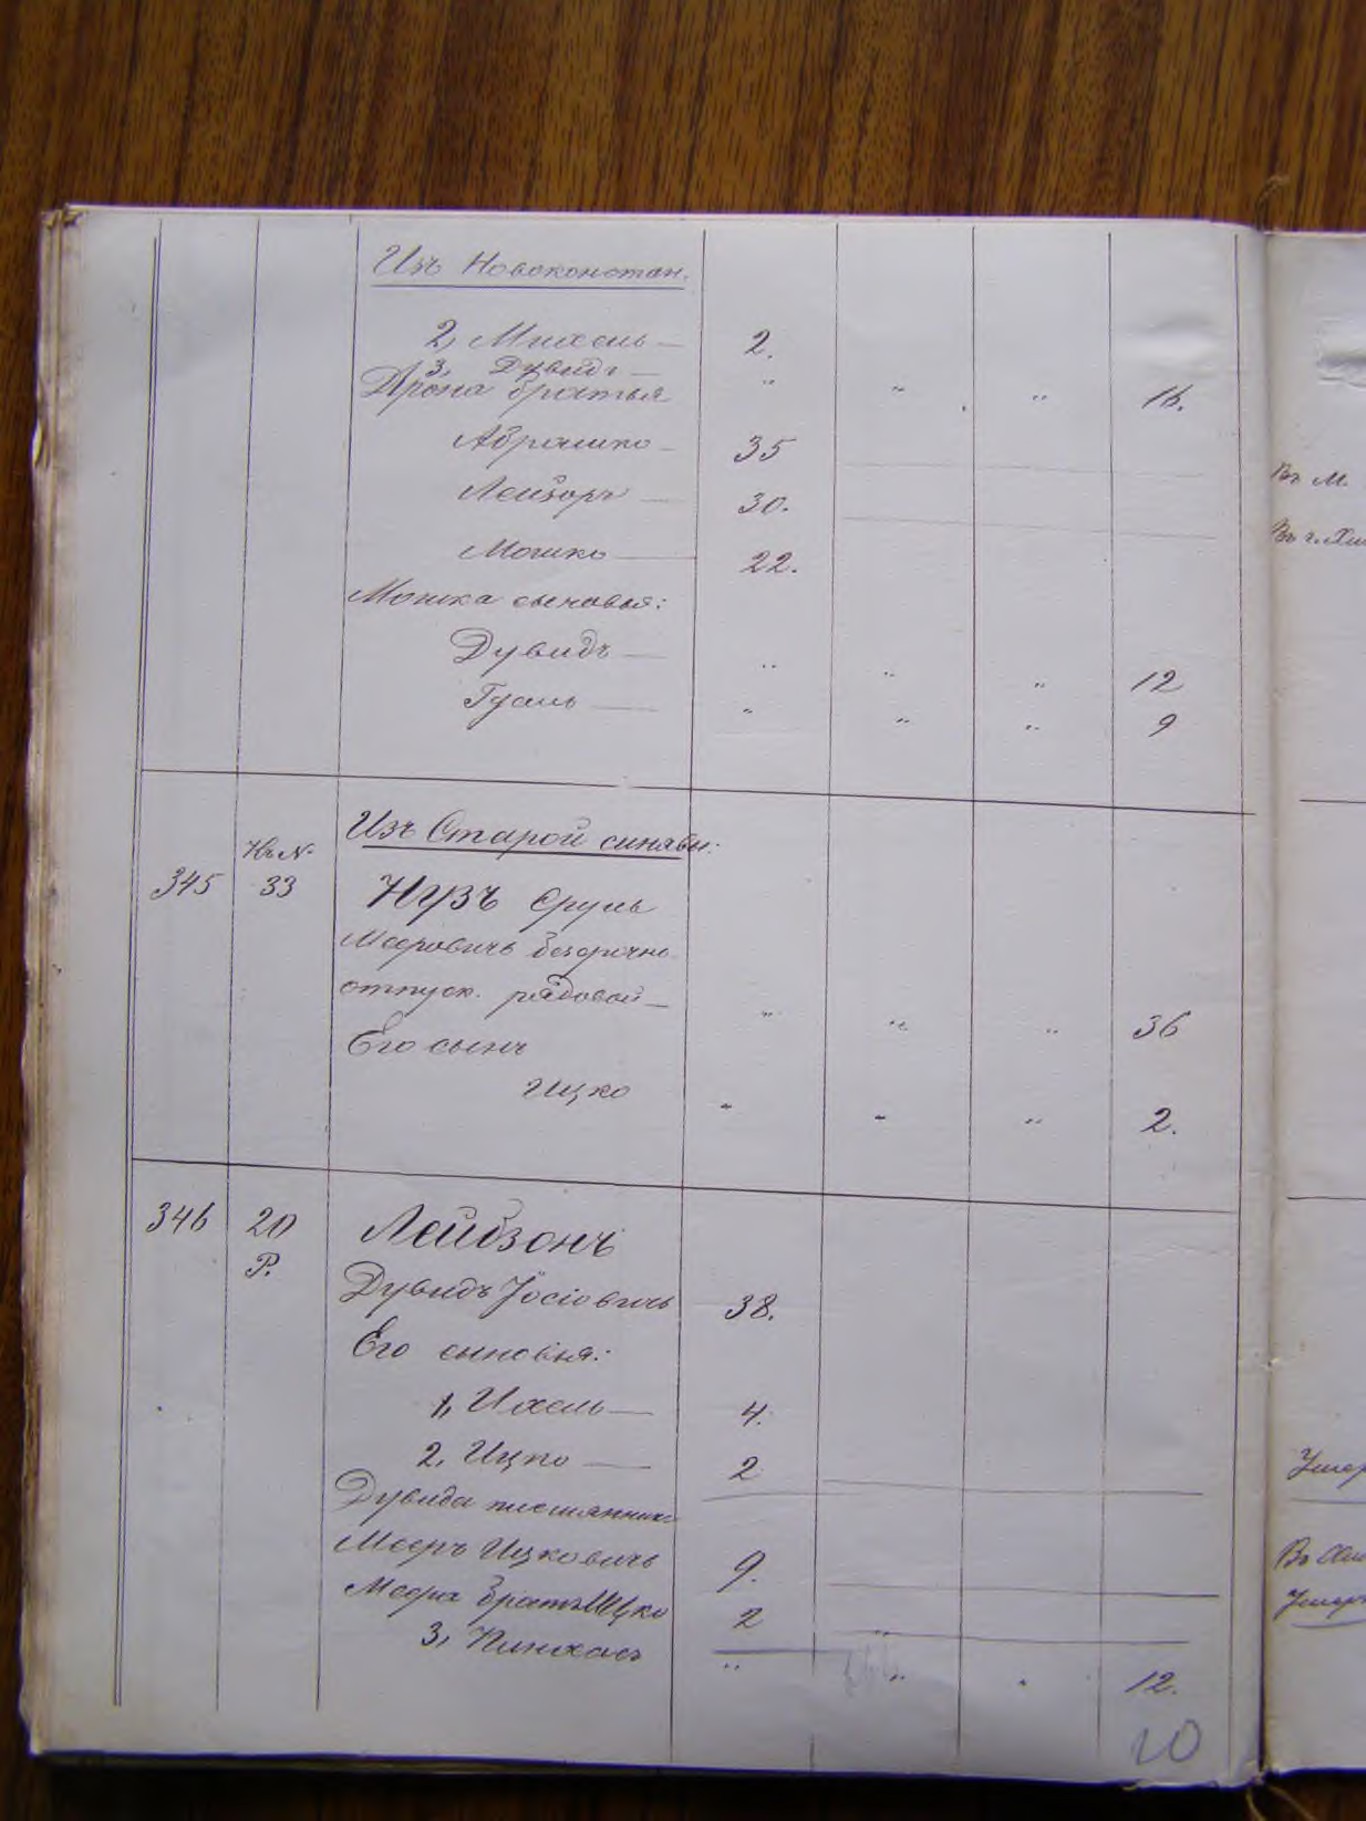 Изъ Новоконстан.
2, Михель — 2.
3, Дувидъ — " " " 16.
Арона братья
Абрашко — 35
Лейзоръ — 30.
Мошко — 22.
Мошка сыновья:
Дувидъ — " " " 12
Гуссль — " " " 9
Изъ Старой синявы:
Къ №
345 33 Нузъ Сруль
Мееровичъ безсрочно
отпуск. рядовой — " " " 36
Его сынъ
Ицко " " " 2.
346 20 Лейбзонъ
Р.
Дувидъ Іосіовичъ 38.
Его сыновья:
1, Ихель — 4.
2, Ицко — 2
Дувида племянники
Мееръ Ицковичъ 9.
Меера братъ Ицко 2
3, Пинхасъ " " " 12.
20
Въ м.
Въ г.
Умер
Въ
Умеръ